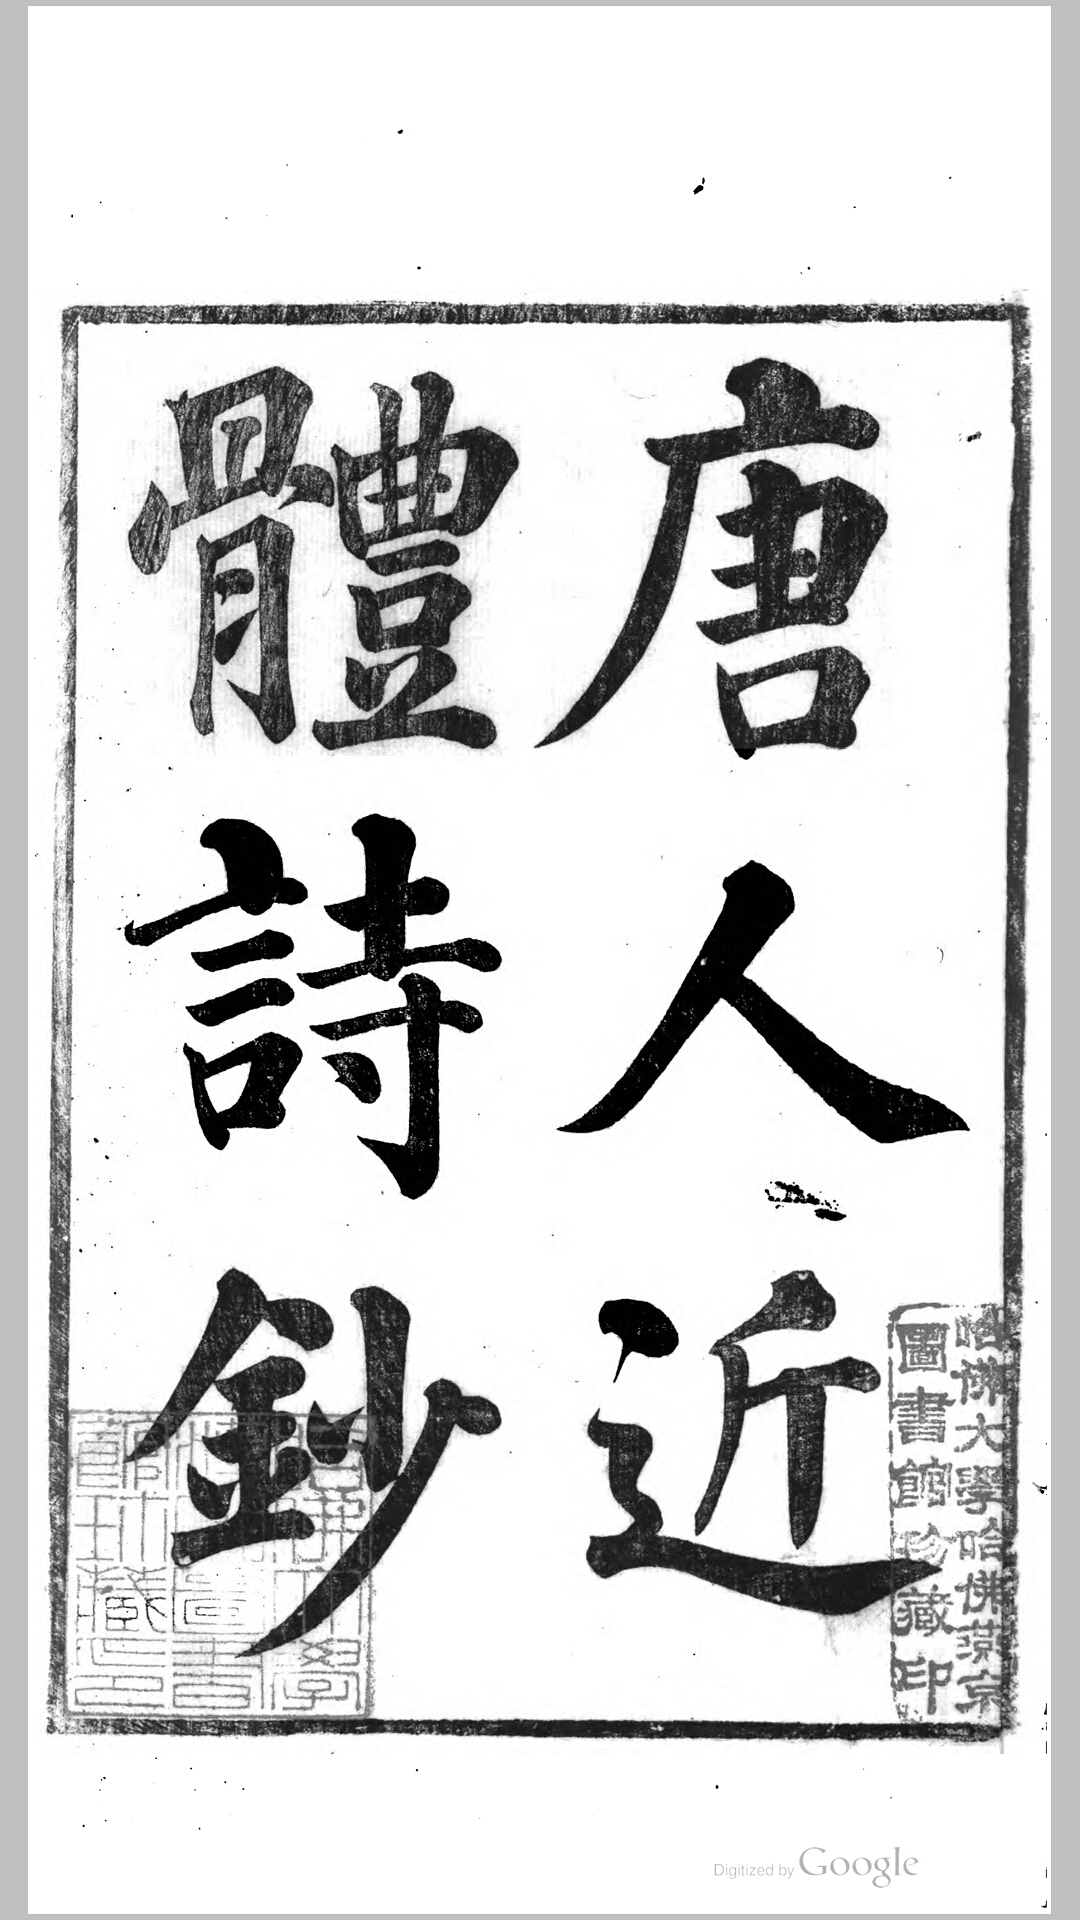 唐人近
體詩鈔
哈佛大學哈佛燕京
圖書館珍藏印
Digitized by Google